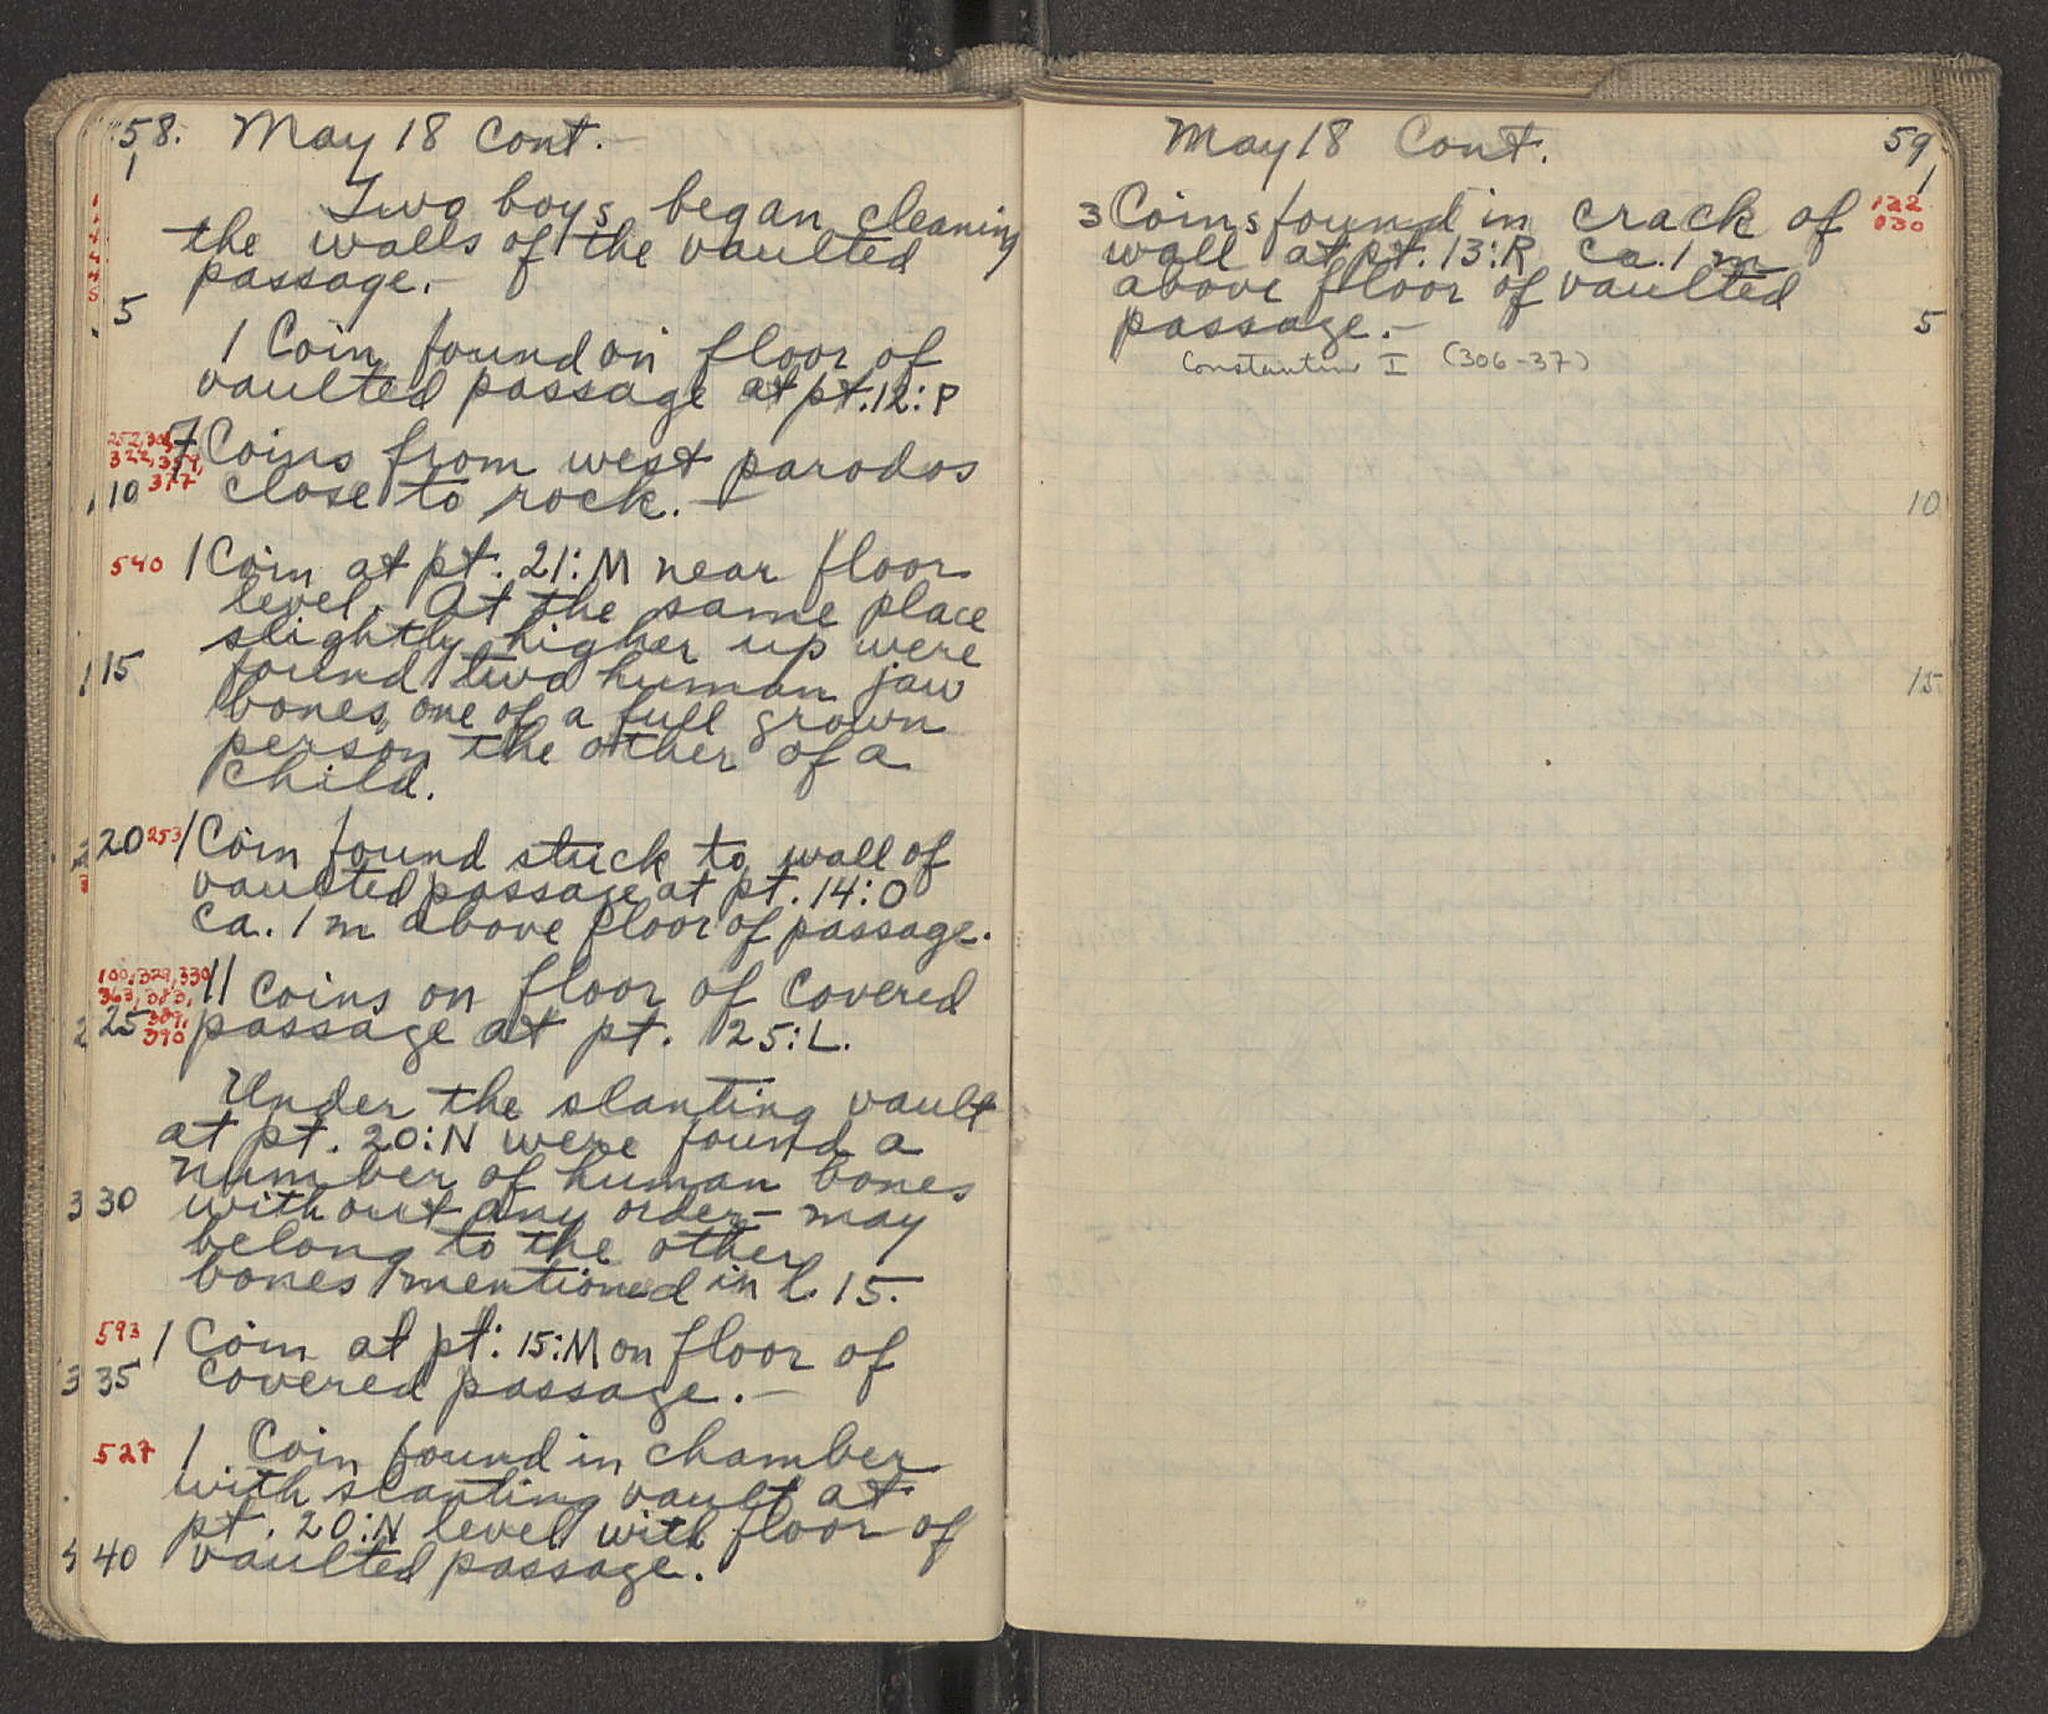 58. May 18 Cont.-
1
Two boys began cleaning
the walls of the vaulted
passage.-
5
1 Coin found on floor of
vaulted passage at pt. 12:P
7 Coins from west parodos
252, 308,
322, 359,
377
10 close to rock.-
540 1 Coin at pt. 21:M near floor
level. At the same place
slightly higher up were
15 found two human jaw
bones, one of a full grown
person the other of a
child.
20 253 1 Coin found stuck to wall of
vaulted passage at pt. 14:O
ca. 1 m above floor of passage.
100, 329, 330
363, 383,
389,
390
11 Coins on floor of covered
25 passage at pt. 25:L.
Under the slanting vault
at pt. 20:N were found a
number of human bones
30 without any order- may
belong to the other
bones mentioned in l. 15.
593 1 Coin at pt: 15:M on floor of
35 covered passage.-
527 1 Coin found in chamber
with slanting vault at
pt. 20:N level with floor of
40 vaulted passage.
May 18 Cont. 59
1
3 Coins found in crack of 122
wall at pt. 13:R ca. 1 m 030
above floor of vaulted
passage.- 5
Constantin I (306-37)
10
15